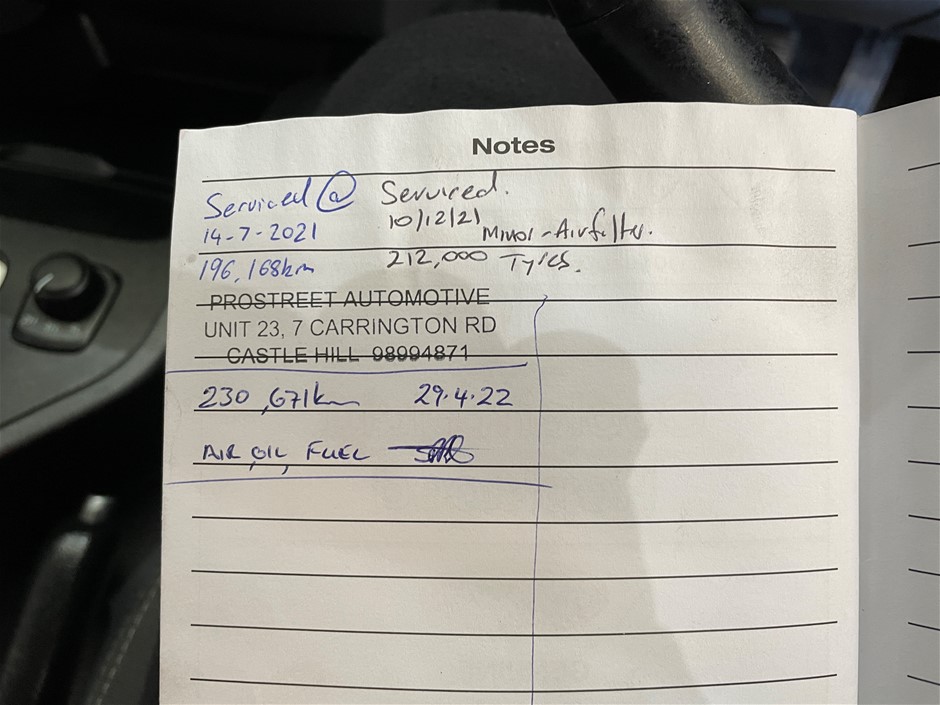 Notes
Serviced @
14-7-2021
196,168km
Serviced.
10/12/21
Minor - Airfilter.
212,000 Tyres.
PROSTREET AUTOMOTIVE
UNIT 23, 7 CARRINGTON RD
CASTLE HILL 98994871
230,671km 29.4.22
AIR, OIL, FUEL